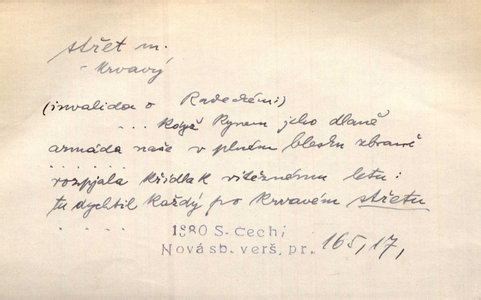 střet m.
- krvavý
(invalida o Radeckém:)
... když kynem jeho dlaně
armáda naše v plném blesku zbraně
. . . . . .
rozpjala křídla k vítěznému letu:
tu dychtil každý po krvavém střetu
. . . .
1880 S. Čech i
Nová sb. verš. pr. 165,17,